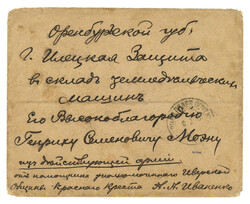 Оренбургской губ.
г. Илецкая Защита
въ складъ земледѣльческихъ
машинъ
Его Высокоблагородію
Генриху Семеновичу Моэну
изъ действующей армiи
отъ помощника уполномоченнаго Иверской
общины Краснаго Креста Н. Н. Иваненко